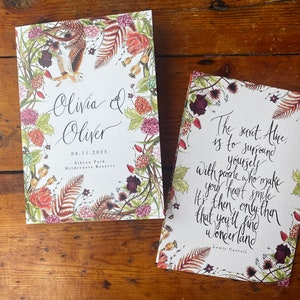 Olivia &
Oliver
04.11.2023
Sibton Park
Wilderness Reserve
The secret Alice,
is to surround
yourself
with people who make
your heart smile
It's then, only then
that you'll find
wonderland
Lewis Carroll